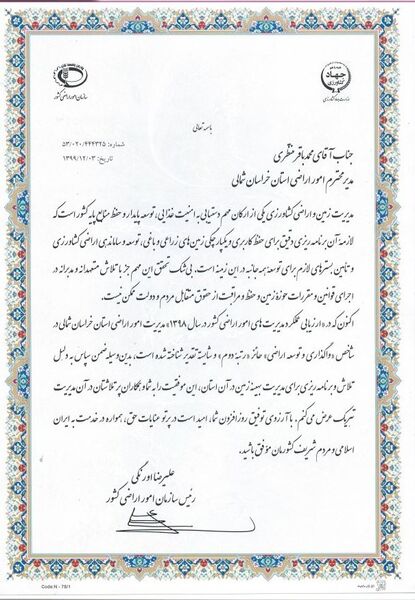 باسمه تعالی
شماره: ۵۳/۰۲۰/۴۴۴۳۲۵
تاریخ: ۱۳۹۹/۱۲/۰۳
جهاد کشاورزی
وزارت جهاد کشاورزی
سازمان امور اراضی کشور
جناب آقای محمدباقر منظری
مدیر محترم امور اراضی استان خراسان شمالی
مدیریت زمین و اراضی کشاورزی یکی از ارکان مهم دستیابی به امنیت غذایی، توسعه پایدار و حفظ منابع پایه کشور است که
لازمه آن برنامه ریزی دقیق برای حفظ کاربری و یکپارچگی زمین های زراعی و باغی، توسعه و ساماندهی اراضی کشاورزی
و تأمین بسترهای لازم برای توسعه همه جانبه در این زمینه است. بی شک تحقق این مهم جز با تلاش متعهدانه و مدبرانه در
اجرای قوانین و مقررات حوزه زمین و حفظ و مراقبت از حقوق متقابل مردم و دولت ممکن نیست.
اکنون که در «ارزیابی عملکرد مدیریت های امور اراضی کشور در سال ۱۳۹۸» مدیریت امور اراضی استان خراسان شمالی در
شاخص «واگذاری و توسعه اراضی» حائز «رتبه دوم» و شایسته تقدیر شناخته شده است، بدین وسیله ضمن سپاس به دلیل
تلاش و برنامه ریزی برای مدیریت بهینه زمین در آن استان، این موفقیت را به شما و همکاران پرتلاشتان در آن مدیریت
تبریک عرض می کنم. با آرزوی توفیق روزافزون شما، امید است در پرتو عنایات حق، همواره در خدمت به ایران
اسلامی و مردم شریف کشورمان موفق باشید.
علیرضا اورنگی
رئیس سازمان امور اراضی کشور
Code:N - 78/1